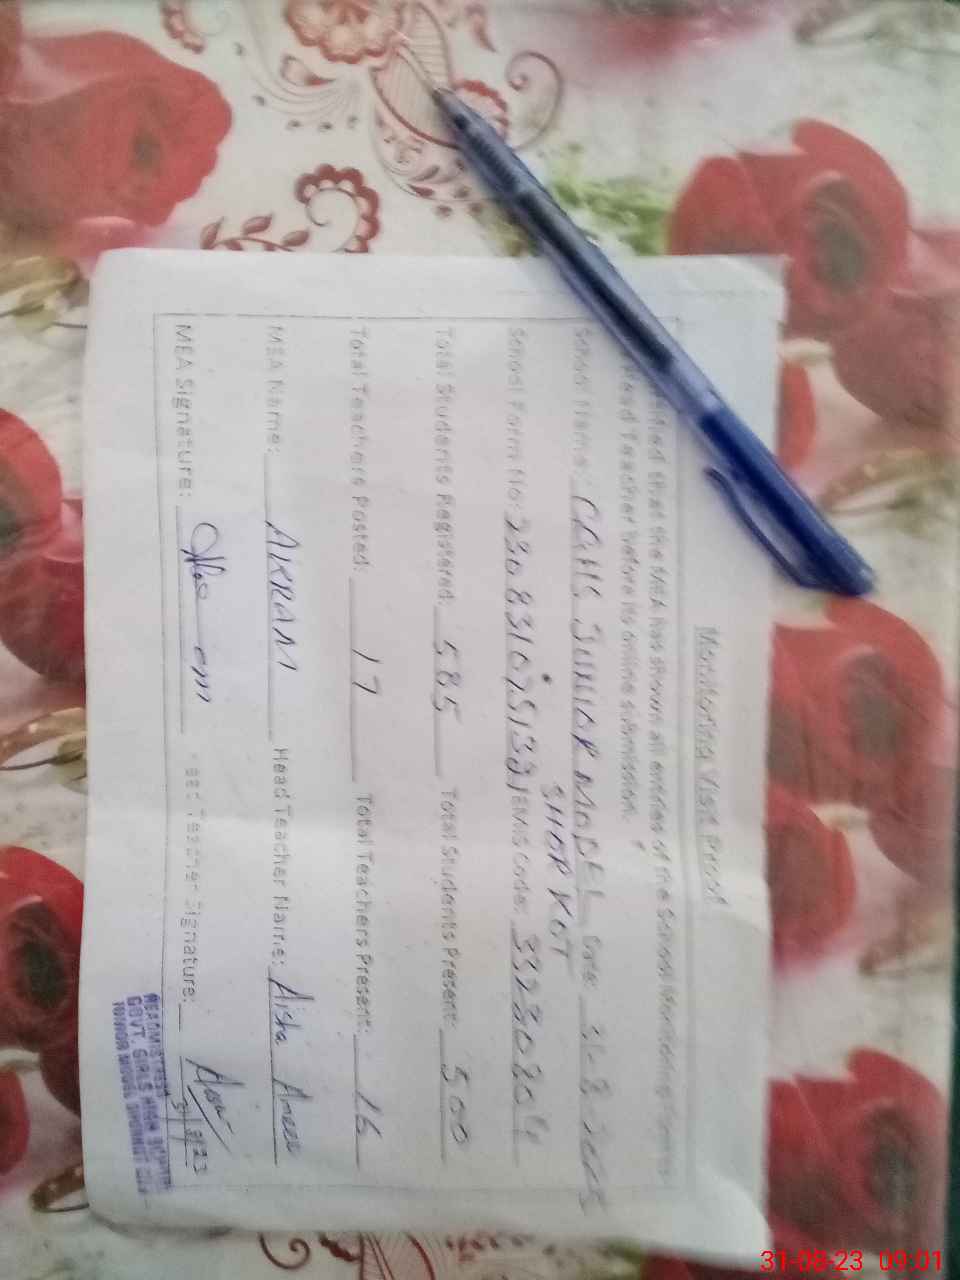 Monitoring Visit Proof
that the MEA has shown all entries of the School Monitoring Forms
Head Teacher before its online submission.
School Name: GGHS JUNIOR MODEL Date: 31-8-2023
SHORKOT
School Form No: EMIS Code: 33230204
Total Students Registered: 585 Total Students Present: 500
Total Teachers Posted: 17 Total Teachers Present: 16
MEA Name: AKRAM Head Teacher Name: Aisha Ameen
MEA Signature: Head Teacher Signature:
HEADMISTRESS
GOVT. GIRLS HIGH SCHOOL
JUNIOR MODEL SHORKOT
31-08-23 09:01